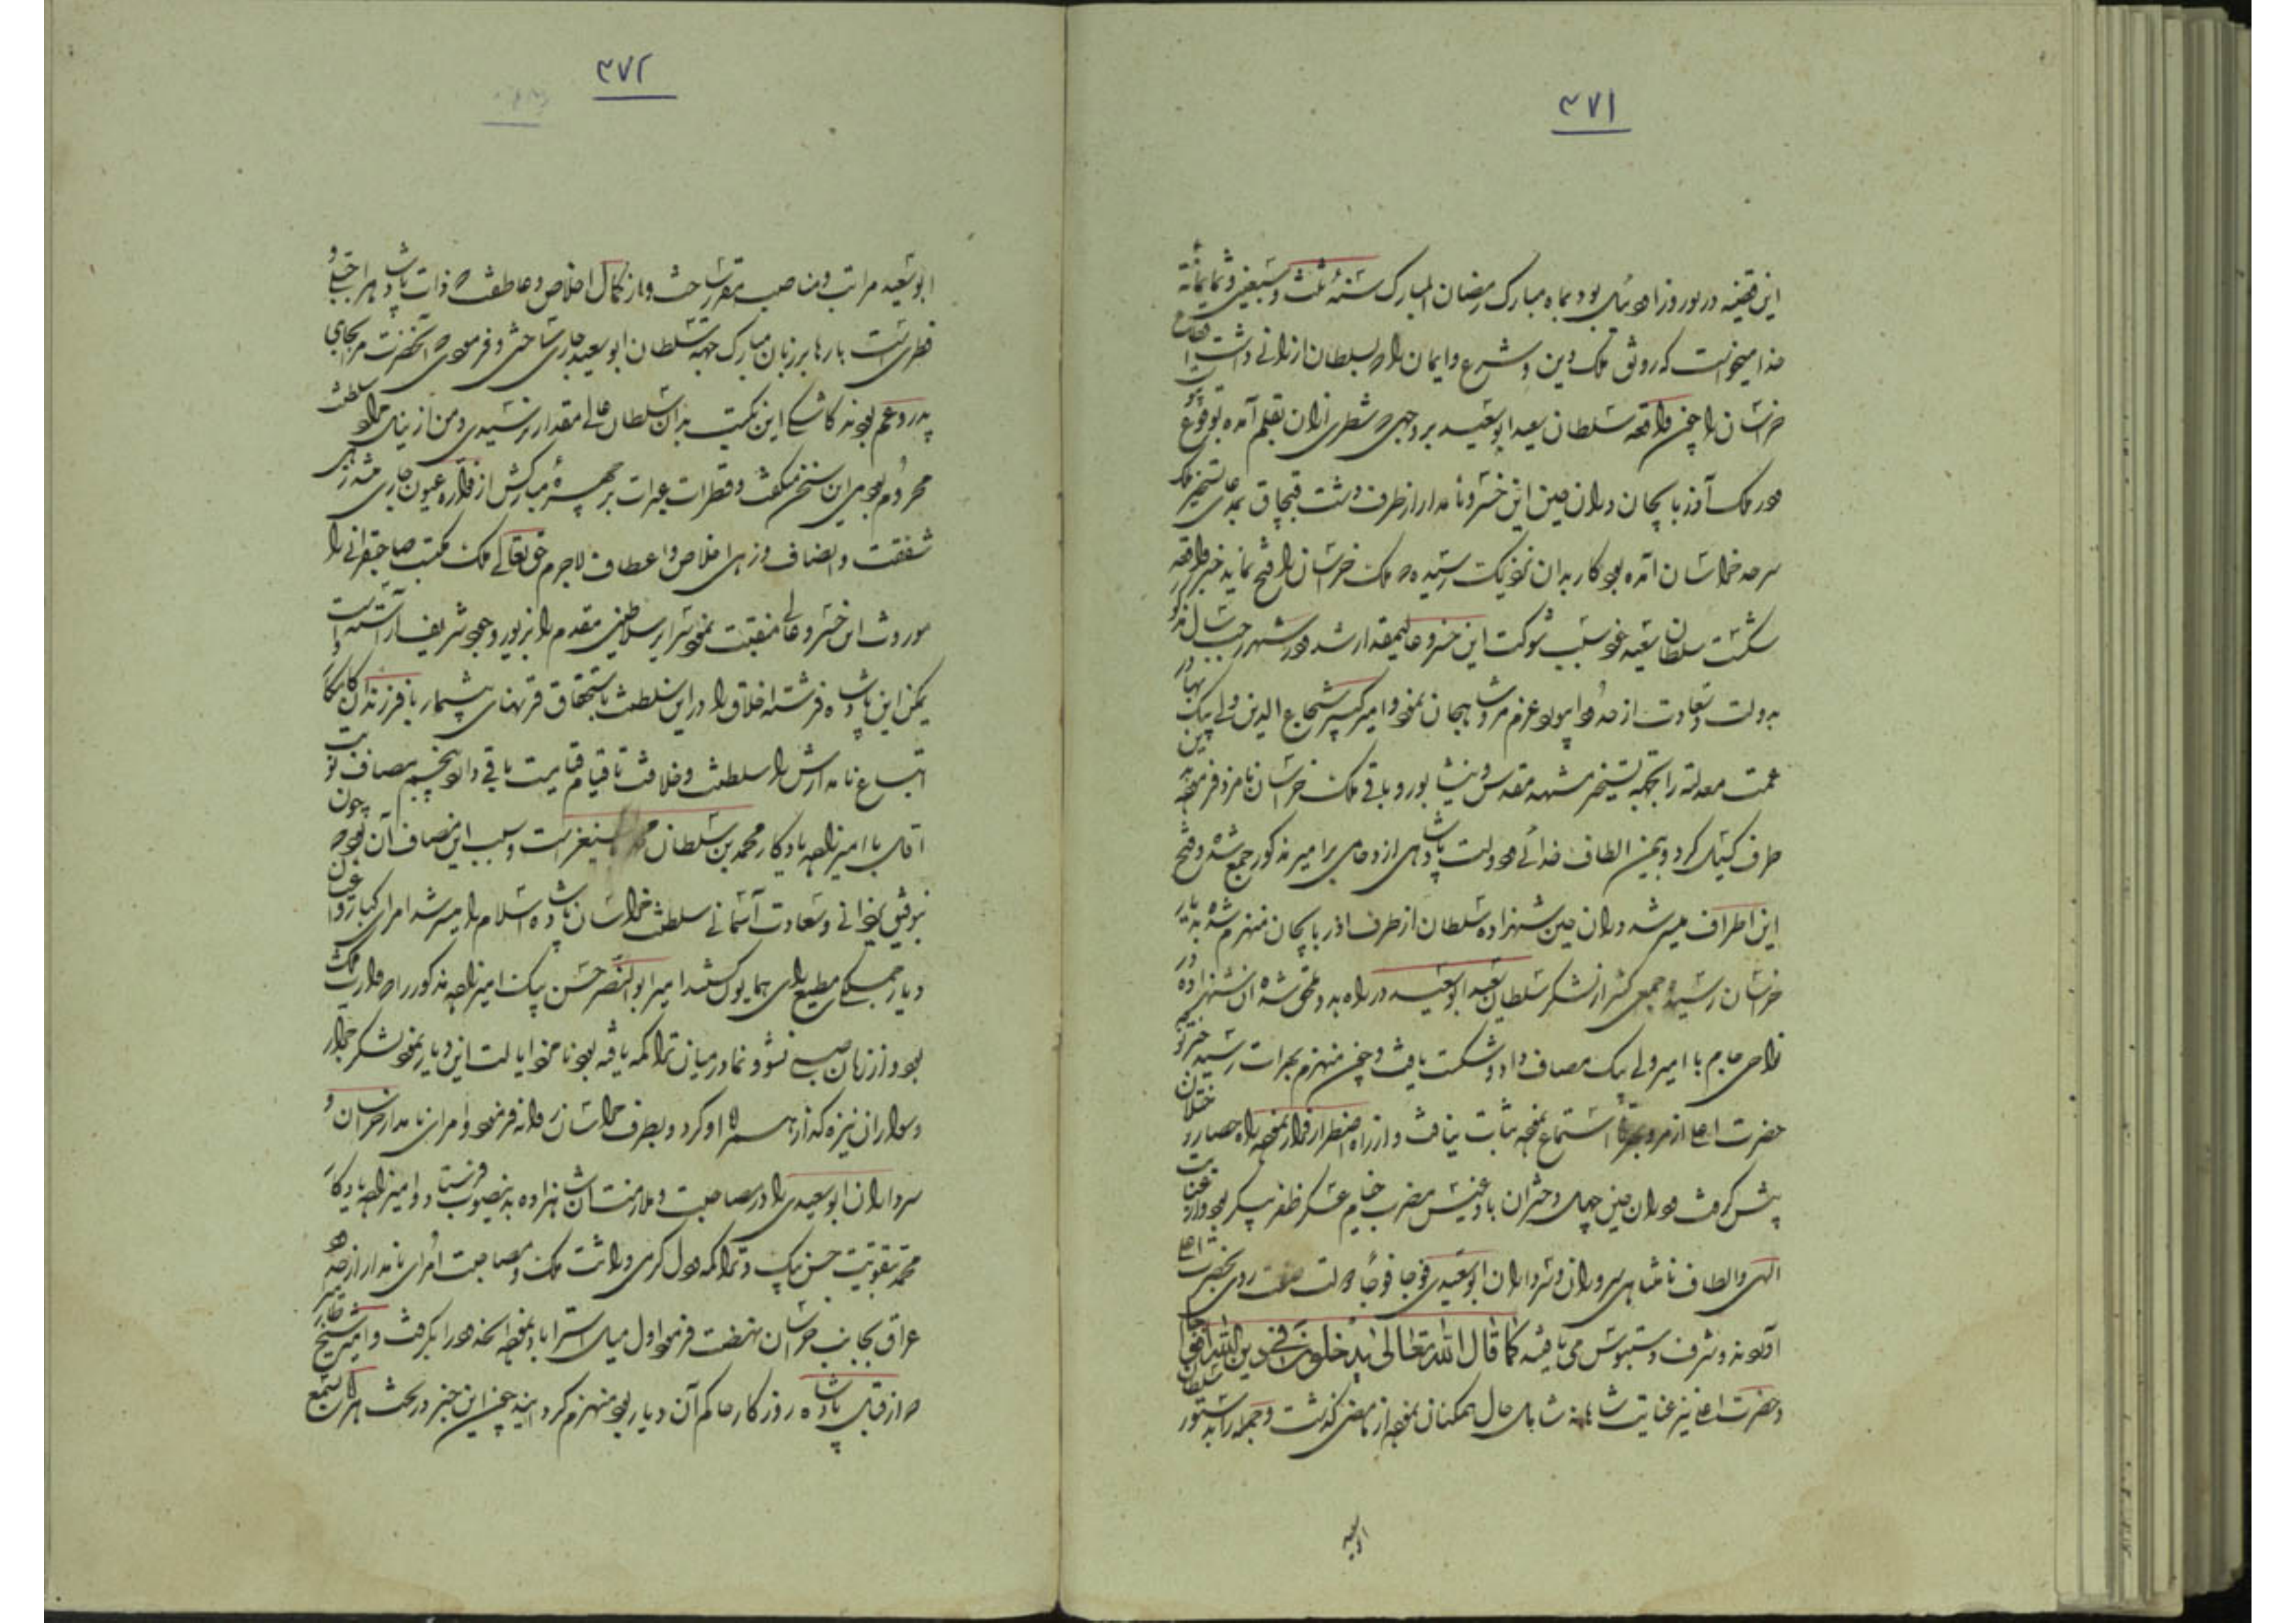 ۴۷۱
این قضیه در نوروز بود بماه مبارک رمضان المبارک سنه ثلث و سبعین و ثمانمائه
خدا میخواست که رونق ملک و دین و شرع و ایمان را سلطان ارزانی داشت
خراسان را چون واقعه سلطان سعید ابوسعید بر وجهی که شطری از آن بقلم آمده بوقوع
در ملک آذربایجان در آن حین این خسرو نامدار از طرف دشت قبچاق بمدعای تسخیر ملک
سرحد خراسان آمده بود کار بدان نزدیک رسیده که ملک خراسان را فتح نماید خبر واقعه
شکست سلطان سعید سبب شوکت این خسرو عالیمقدار شد در شهر رجب سال مذکور
بدولت و سعادت از حدود ابیورد عزم مرو شاهیجان نمود و امیر کبیر شجاع الدین ولی بیک
عمت معدلته را بجهة تسخیر مشهد مقدس و نیشابور و باقی ملک خراسان نامزد فرموده
طرف گیتی کرد و بیمن الطاف خدائی و دولت پادشاهی بر امیر مذکور جمع شده و فتح
این اطراف میسر شد در آن حین شهزاده سلطان از طرف آذربایجان منهزم شده بدیار
خراسان رسیده و جمعی کثیر از لشکر سلطان سعید ابوسعید در راه بدو ملحق شده آن شهزاده در
نواحی جام با امیر ولی بیک مصاف داد و شکست یافت و چون منهزم بهرات رسید خبر توجه
حضرت اعلی از مرو استماع نموده ثبات نیافت و از راه اضطرار فرار نموده راه حصار و ختلان
پیش گرفت در آن حین بادغیس مضرب خیام عسکر ظفر پیکر بود و از عنایت
الهی و الطاف نامتناهی سروران و سرداران ابوسعیدی فوجا فوجا روی بحضرت اعلی
آوردند و شرف دستبوس می یافتند کما قال الله تعالی یدخلون فی دین الله افواجا
و حضرت اعلی نیز عنایت شاهانه شامل حال همگنان نموده از ماضی گذشت و جمله را بدستور سلطان
ابوسعید
۴۷۲
ابوسعید مراتب و مناصب مقرر ساخت و از کمال اخلاص و عاطفت که ذات پادشاه را جبلی و
فطری است بارها بر زبان مبارک جهة سلطان ابوسعید جاری ساختی و فرمودی که آنحضرت مرا بجای
پدر و عم بودند کاشکی این نکبت بدان سلطان عالی مقدار نرسیدی و من از سلطنت
محروم بودمی این سخن میگفت و قطرات عبرات بر چهره مبارکش از فواره عیون جاری میشد زهی
شفقت و انصاف و زهی اخلاص و اعطاف لاجرم حق تعالی ملک مکتسب صاحبقرانی را
موروث این خسرو عالی منقبت نمود سریر سلاطین مقدم را بزیور وجود شریفش آراسته است
این پادشاه فرشته اخلاق را در این سلطنت باستحقاق قرنهای بیشمار با فرزندان کامکار
اتباع نامدارش را سلطنت و خلافت تا قیام قیامت باقی داراد پنجم مصاف نوبت
با امیرزاده یادگار محمد بن سلطان محمد بایسنغر است و سبب این مصاف آن بود که چون
بتوفیق یزدانی و سعادت آسمانی سلطنت خراسان پادشاه اسلام را میسر شد امرای کبار و اعیان
دیار جملگی مطیع رای همایون شدند امیر ابوالنصر حسن بیک امیرزاده مذکور را که وارث ملک
بود و از زمان صبی نشو و نما در میان تراکمه یافته بود نامزد ایالت این دیار نموده لشکر جرار
و سواران نیزه گذار همراه او کرد و بطرف خراسان روانه فرمود و امرای نامدار خراسان و
سرداران ابوسعیدی را در مصاحبت و ملازمت شاهزاده بدینصوب فرستاد و امیرزاده یادگار
محمد بتقویت حسن بیک و تراکمه وراثت ملک و مصاحبت امرای نامدار از حدود
عراق بجانب خراسان نهضت فرمود اول میل استراباد نموده آنحدود را بگرفت و امیر شیخ
که از قبل پادشاه روزگار حاکم آن دیار بود منهزم گردانید چون این خبر در تخت هرات بسمع